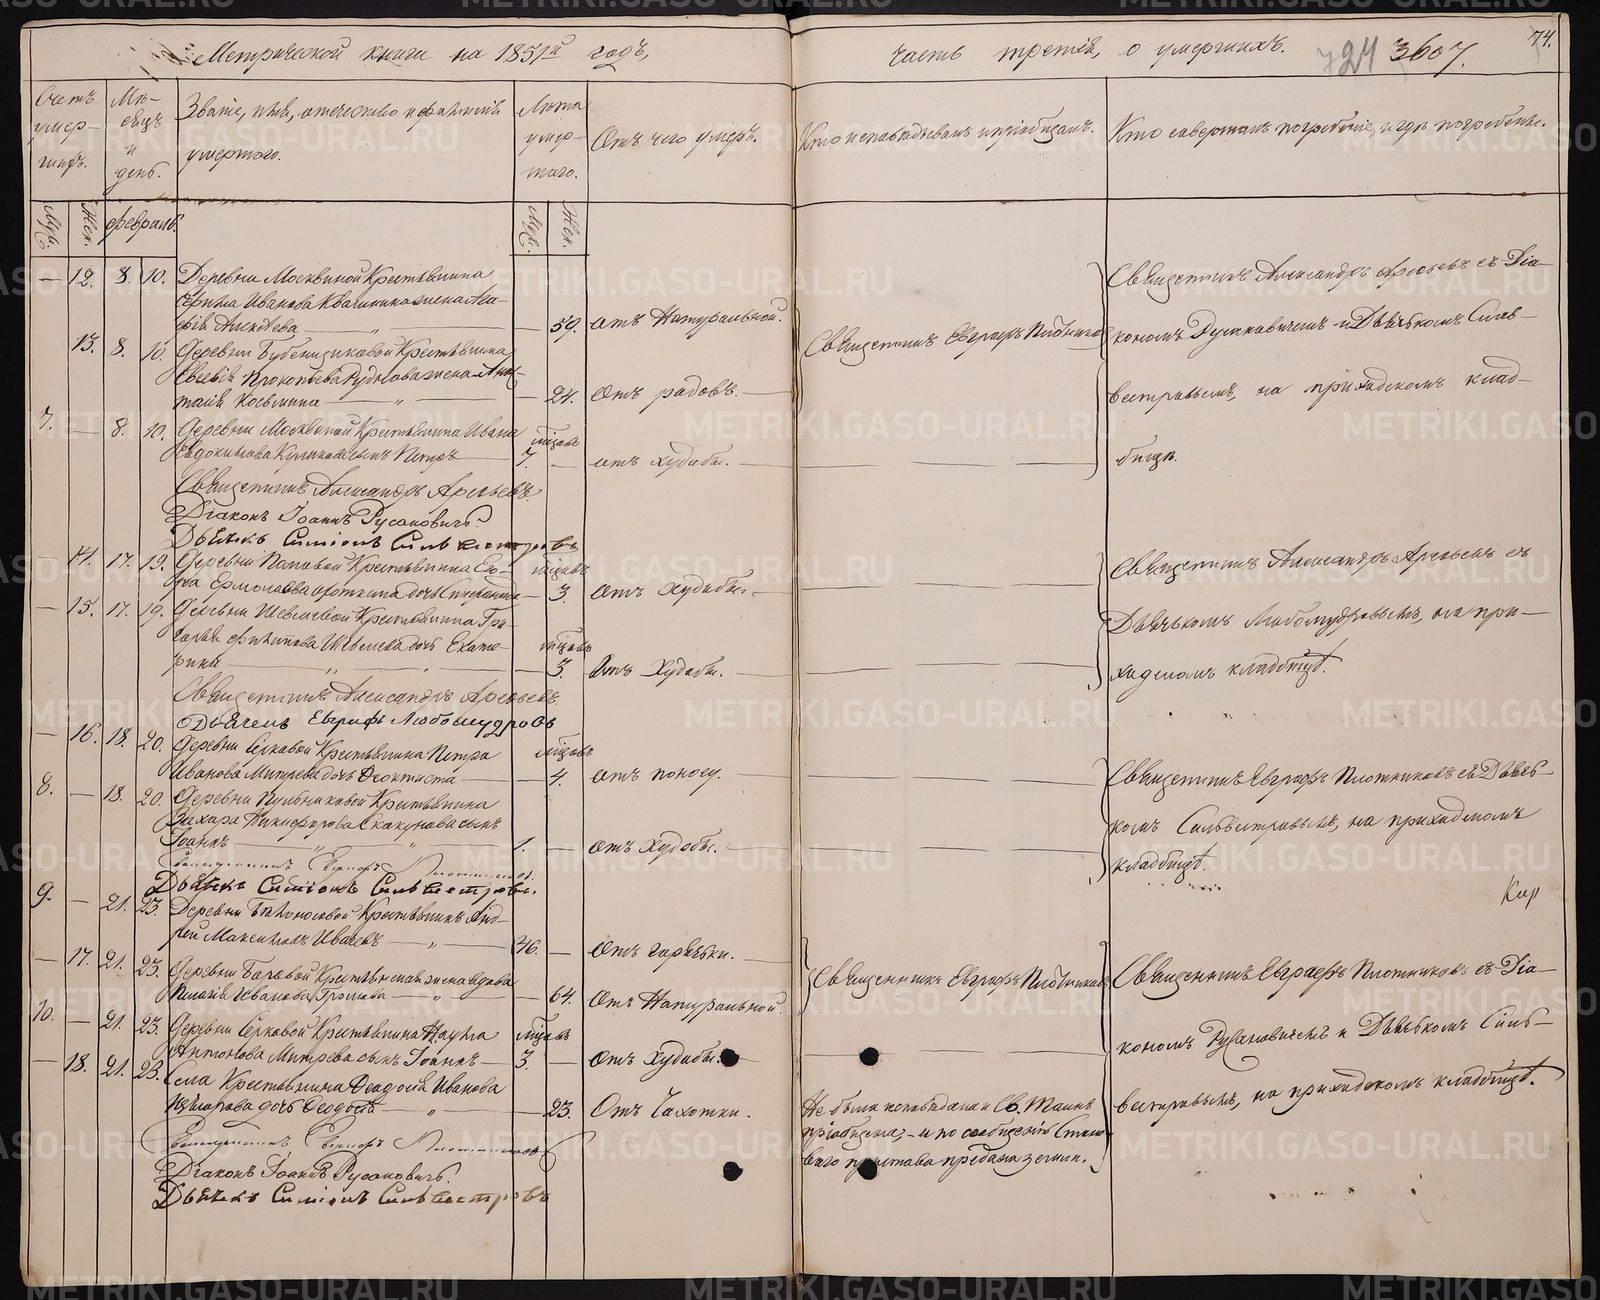 Метрической книги на 1851й годъ,
часть третiя, о умершихъ.
724 3607. 74.
Счетъ умер-шихъ.
Мѣ-сяцъ и день.
Званiе, имя, отечество и фамилiя умершаго.
Лѣта умер-шаго.
Отъ чего умеръ.
Кто исповѣдывалъ и прiобщалъ.
Кто совершалъ погребенiе, и гдѣ погребены.
Муж. Жен. Февраль. Муж. Жен.
— 12. 8. 10. Деревни Москвиной Крестьянина
Ивановa Квашнина жена Ага-
фiя Алексѣева — 59. отъ Натуральной.
Священникъ Евграфъ Плотниковъ
Священникъ Александръ Арсеньевъ съ Дiа-
кономъ Русановичемъ и Дьячькомъ Силь-
вестровымъ, на приходскомъ клад-
бищѣ.
13. 8. 10. Деревни Бубенщиковой Крестьянина
Евсевiя Прокопьева Рудакова жена Ната-
талiя Косьмина — 24. Отъ родовъ. —
7. — 8. 10. Деревни Москвиной Крестьянина Ивана
Евдокимова Куликова сынъ Петръ — мѣсяцовъ 7. — отъ худобы. —
Священникъ Александръ Арсеньевъ.
Дiаконъ Iоаннъ Русановичъ.
Дьячекъ Симiонъ Сильвестровъ
— 14. 17. 19. Деревни Паповой Крестьянина Его-
ра Ермолаева дочь Степанида — мѣсяцовъ 3. Отъ Худобы. —
Священникъ Александръ Арсеньевъ съ
Дьячькомъ Любомудровымъ, на при-
ходскомъ кладбищѣ.
— 15. 17. 19. Деревни Шевелевой Крестьянина Гри-
горья Филипова Шевелева дочь Екате-
рина — мѣсяцовъ 3. Отъ Худобы. —
Священникъ Александръ Арсеньевъ.
Дьячекъ Евграфъ Любомудровъ
— 16. 18. 20. Деревни Серковой Крестьянина Петра
Иванова Митрева дочь Феоктиста — мѣсяцовъ 4. отъ поносу.
Священникъ Евграфъ Плотниковъ съ Дьячь-
комъ Сильвестровымъ, на приходскомъ
кладбищѣ.
8. — 18. 20. Деревни Крестьянина
Захара Никифорова Скакунова сынъ
Iоаннъ — 1. — отъ Худобы. —
Священникъ Евграфъ Плотниковъ.
Дьячекъ Симiонъ Сильвестровъ.
9. — 21. 23. Деревни Бѣлоносовой Крестьянинъ Анд-
рей Максимовъ Ивачевъ — 46. — Отъ горячьки. —
Священникъ Евграфъ Плотниковъ
Священникъ Евграфъ Плотниковъ съ Дiа-
кономъ Русановичемъ и Дьячькомъ Сильв-
вестровымъ, на приходскомъ кладбищѣ.
— 17. 21. 23. Деревни Крестьянская жена вдова
Пелагiя Иванова — 64. Отъ Натуральной.
10. — 21. 23. Деревни Серковой Крестьянина Наума
Антонова Митрева сынъ Iоаннъ — мѣсяцовъ 3. — Отъ Худобы.
— 18. 21. 23. Села Крестьянина Феодосiя Иванова
дочь Феодосiя — 23. Отъ Чахотки.
Не была исповѣдана и Св. Таинъ
прiобщена; — и по сообщенiю Стано-
ваго пристава предана землѣ.
Священникъ Евграфъ Плотниковъ
Дiаконъ Iоаннъ Русановичъ.
Дьячекъ Симiонъ Сильвестровъ
METRIKI.GASO-URAL.RU